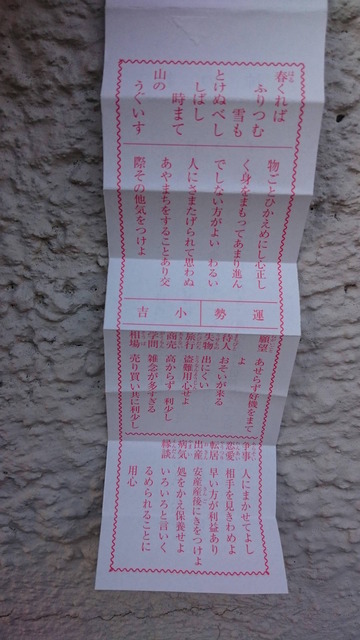 春くれば
ふりつむ
雪も
とけぬべし
しばし
時まて
山の
うぐいす
物ごとひかえめにし心正し
く身をまもってあまり進ん
でしない方がよい わるい
人にさまたげられて思わぬ
あやまちをすることあり交
際その他気をつけよ
運勢 小吉
願望 あせらず好機をまて
よ
待人 おそいが来る
失物 出にくい
旅行 盗難用心せよ
商売 高からず 利少し
学問 雑念が多すぎる
相場 売り買い共に利少し
争事 人にまかせてよし
恋愛 相手を見きわめよ
転居 早い方が利益あり
出産 安産産後にきをつけよ
病気 処をかえ保養せよ
縁談 いろいろと言いく
るめられることに
用心